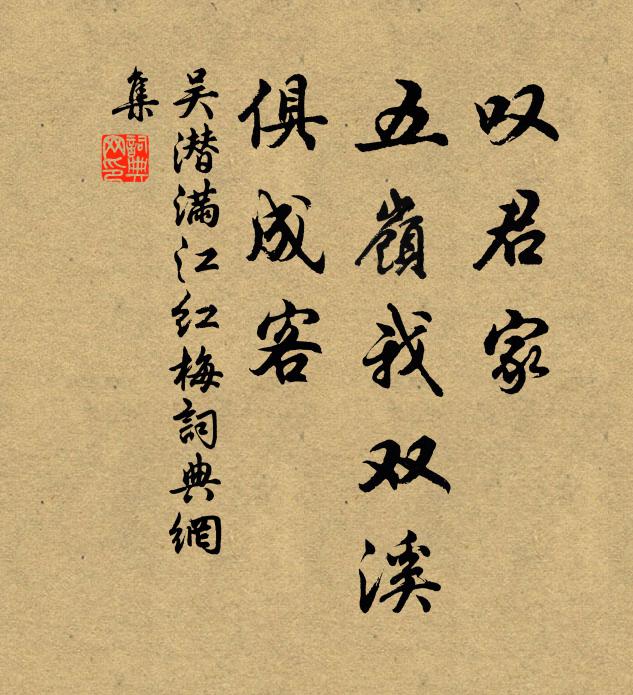 叹君家
五嶺我双溪
俱成客
吴潜满江红梅詞典網
集
詞典網印